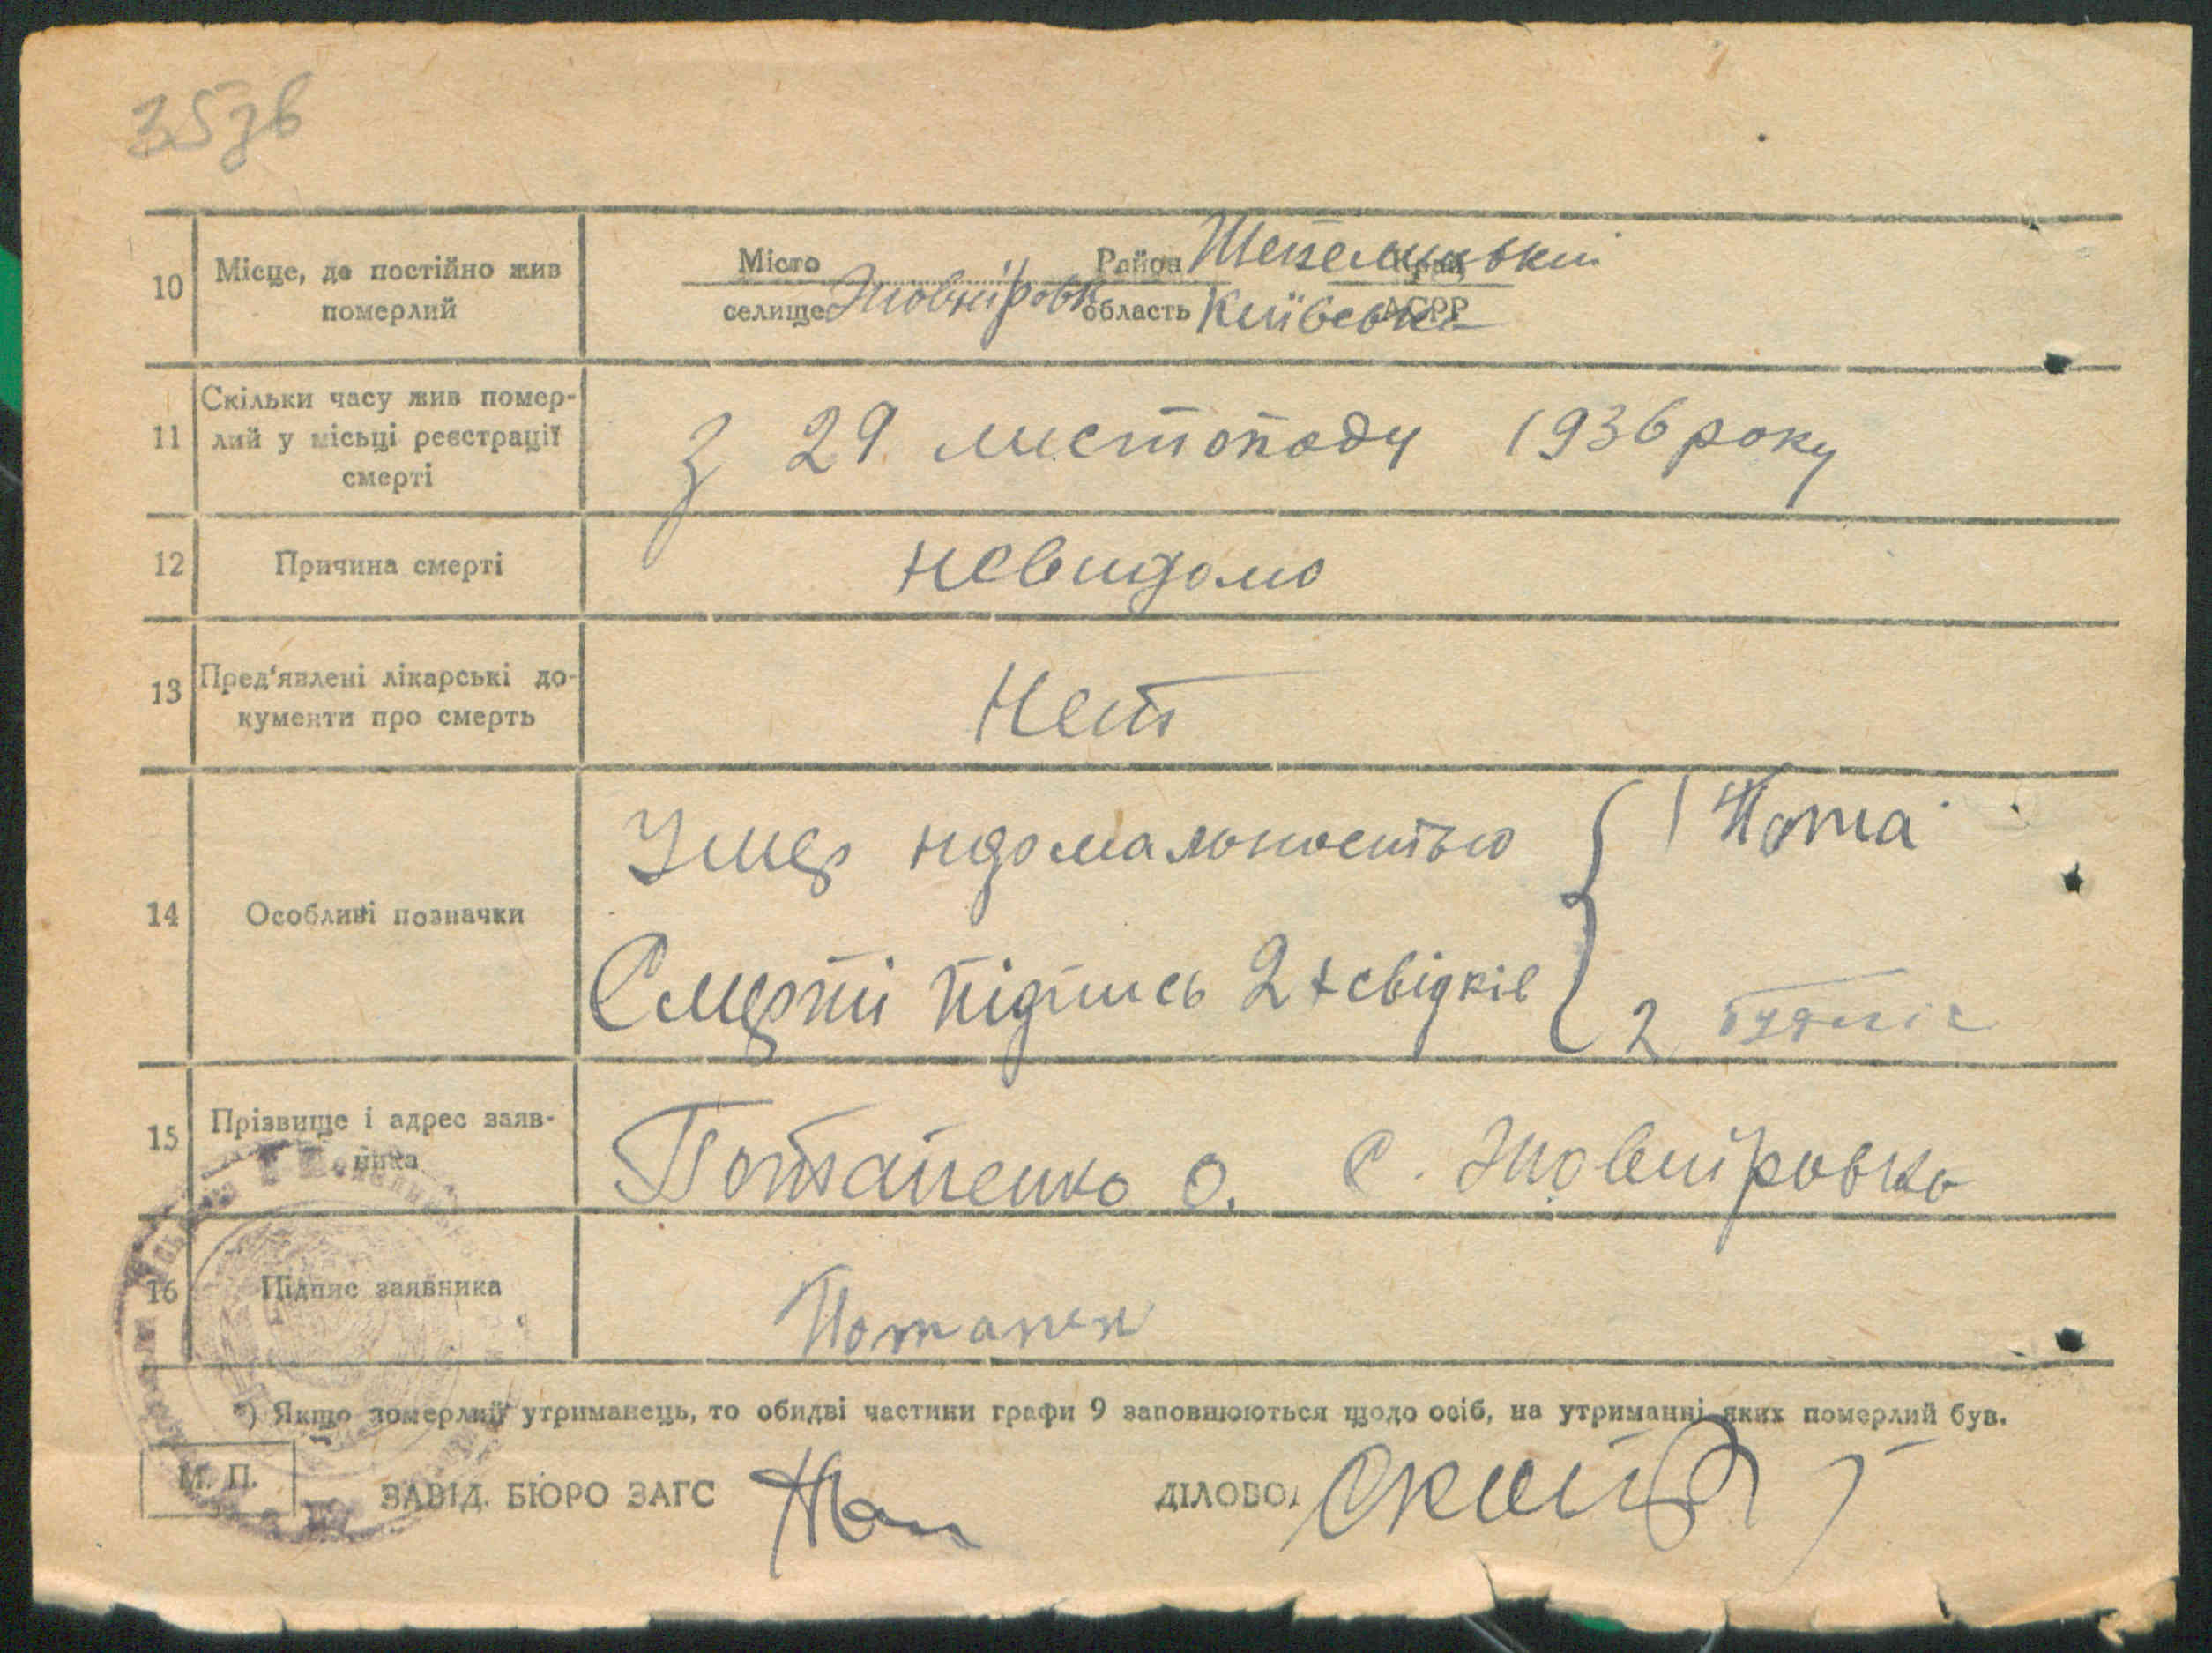 35зв
10 Місце, де постійно жив померлий
Місто Район Шепелицький Край
селище Жовніровк область Київська АСРР
11 Скільки часу жив помер-
лий у місьці реєстрації
смерті
З 29 листопаду 1936 року
12 Причина смерті невидомо
13 Пред'явлені лікарські до-
кументи про смерть
Нет
14 Особливі позначки
Умер
Смерти підпись 2х свідків
1
2
15 Прізвище і адрес заяв-
ника
Потапенко О. С. Жовніровка
16 Підпис заявника Потапен
*) Якщо померлий утриманець, то обидві частини графи 9 заповнюються щодо осіб, на утриманні яких померлий був.
М. П. ЗАВІД. БЮРО ЗАГС ДІЛОВОД